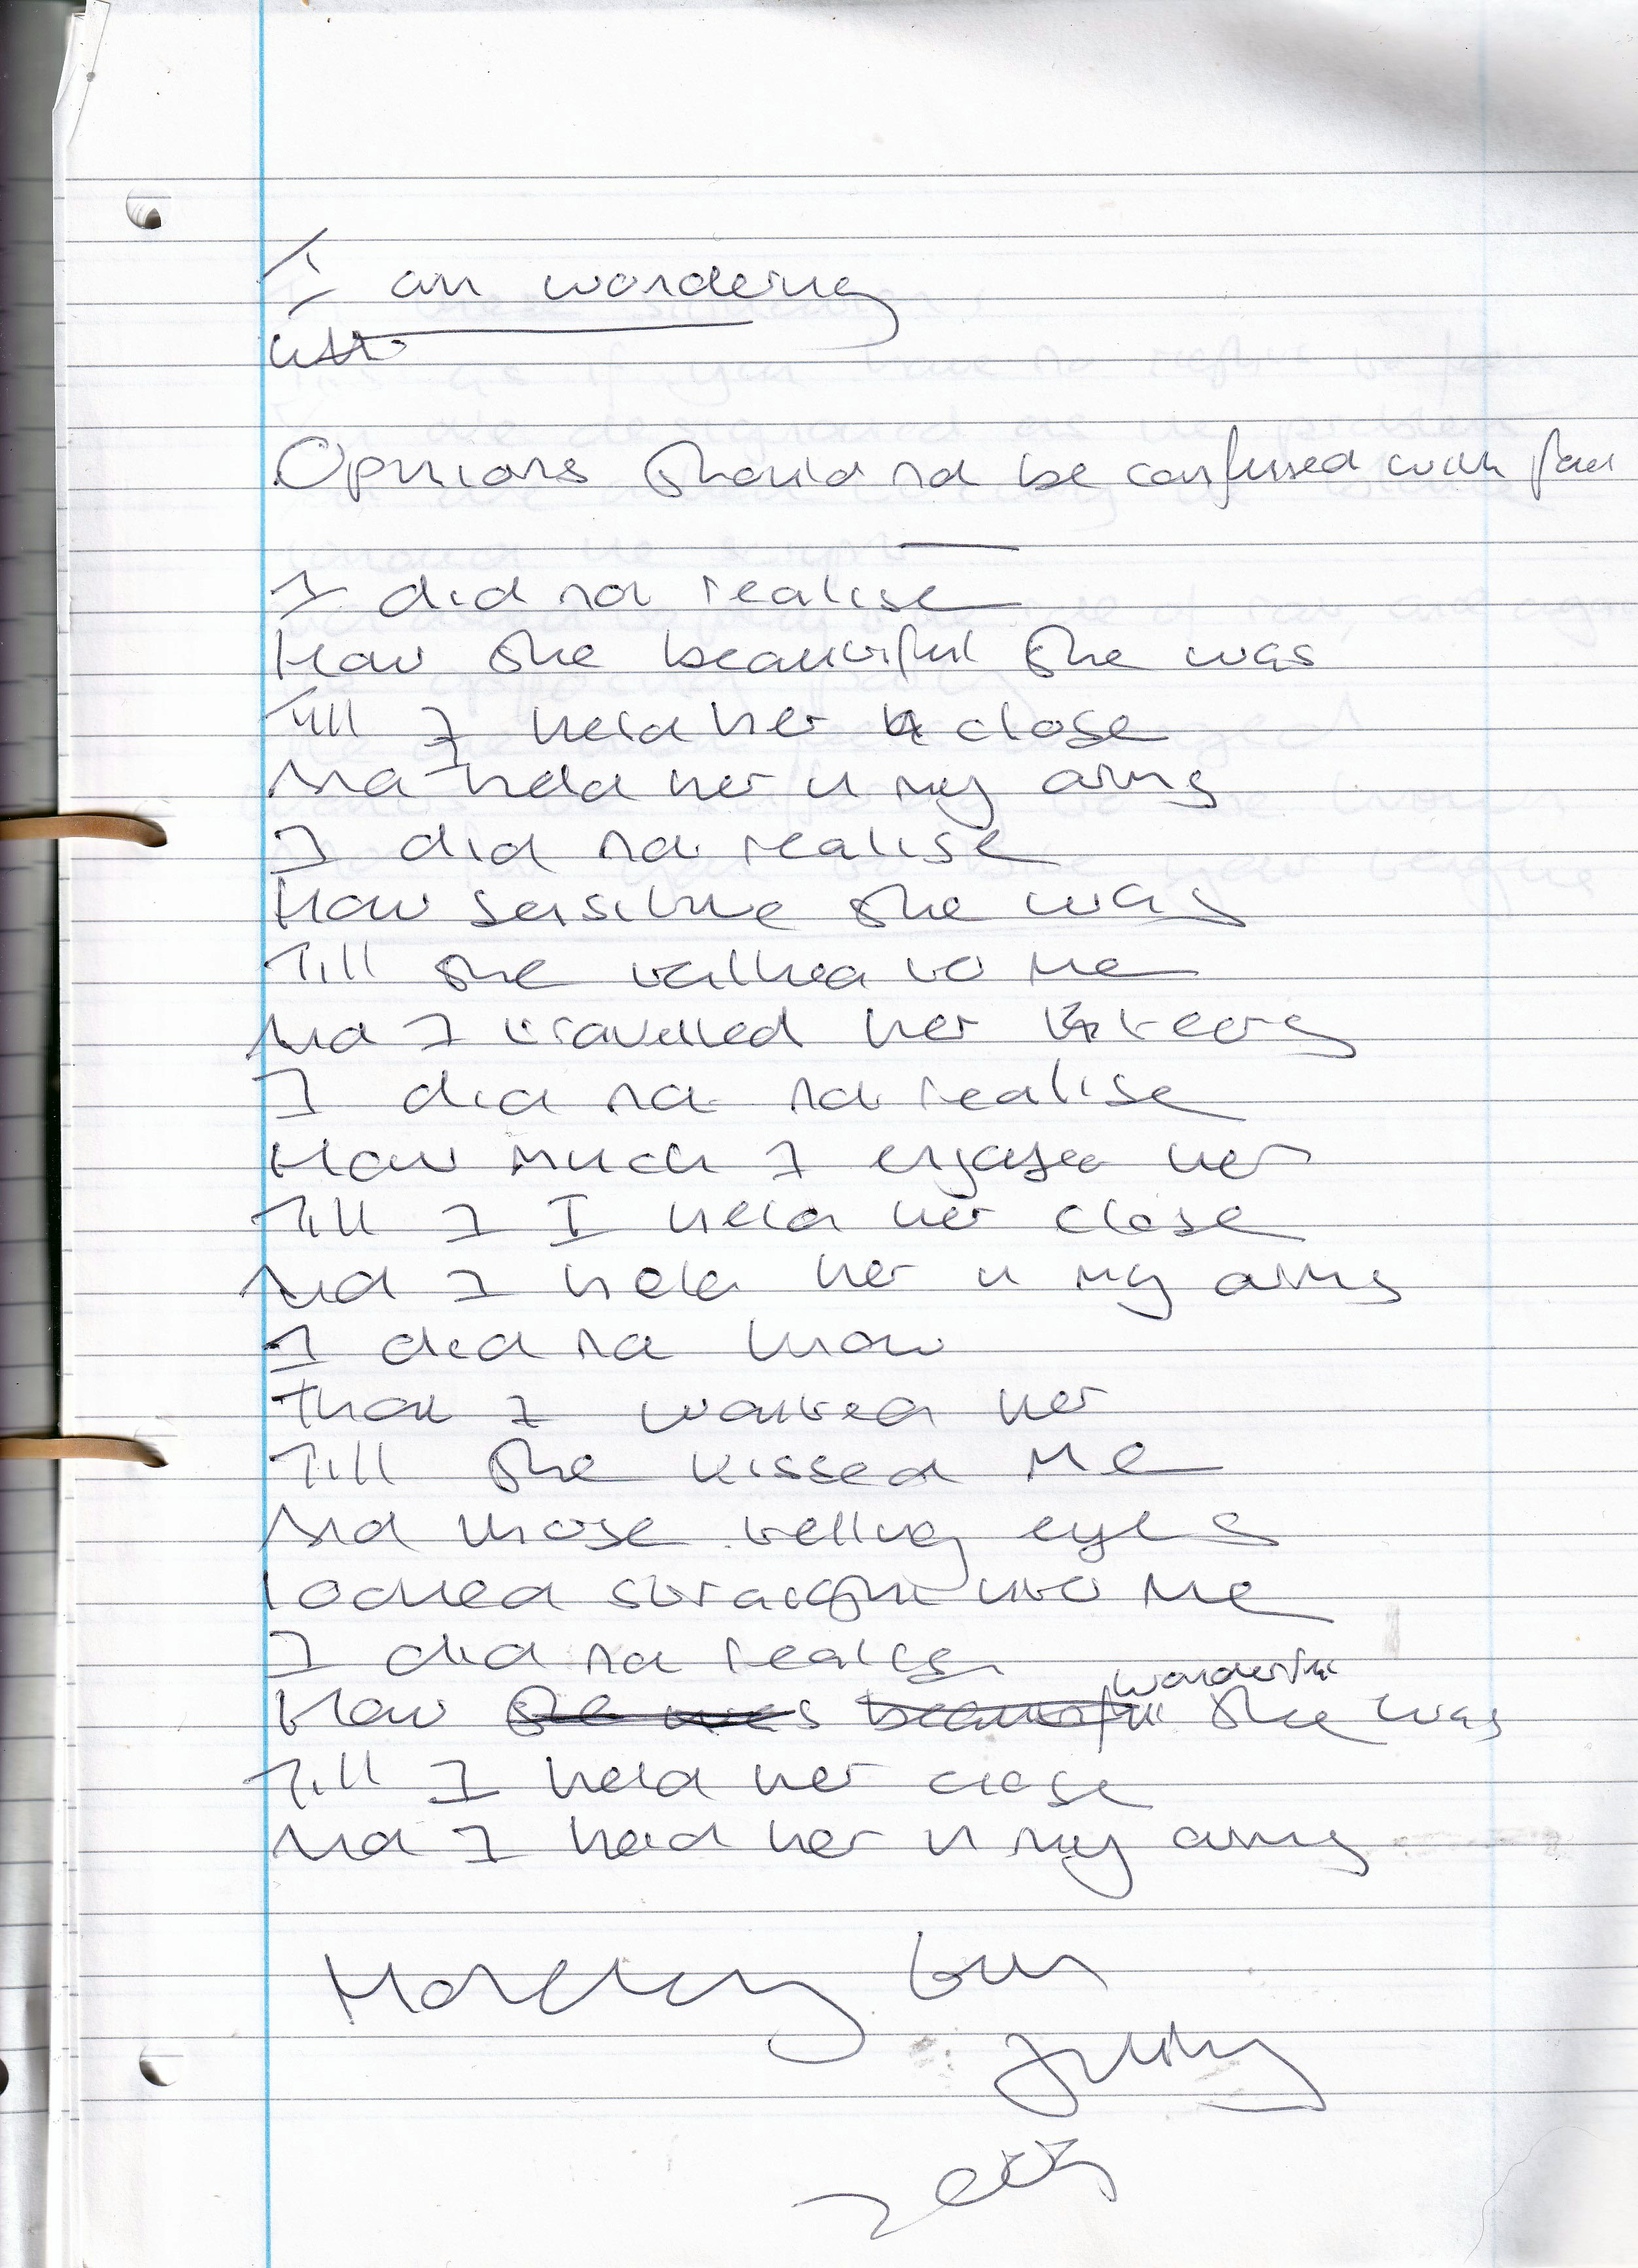 I am wondering
Opinions should not be confused with fact
I did not realise
How she beautiful she was
Till I held her close
And held her in my arms
I did not realise
How sensitive she was
Till she talked to me
And I travelled her
I did not not realise
How much I enjoyed her
Till I I held her close
And I held her in my arms
I did not know
That I wanted her
Till she kissed me
And those telling eyes
looked straight into me
I did not realise
wonderful
How she was beautiful she was
Till I held her close
And I had her in my arms